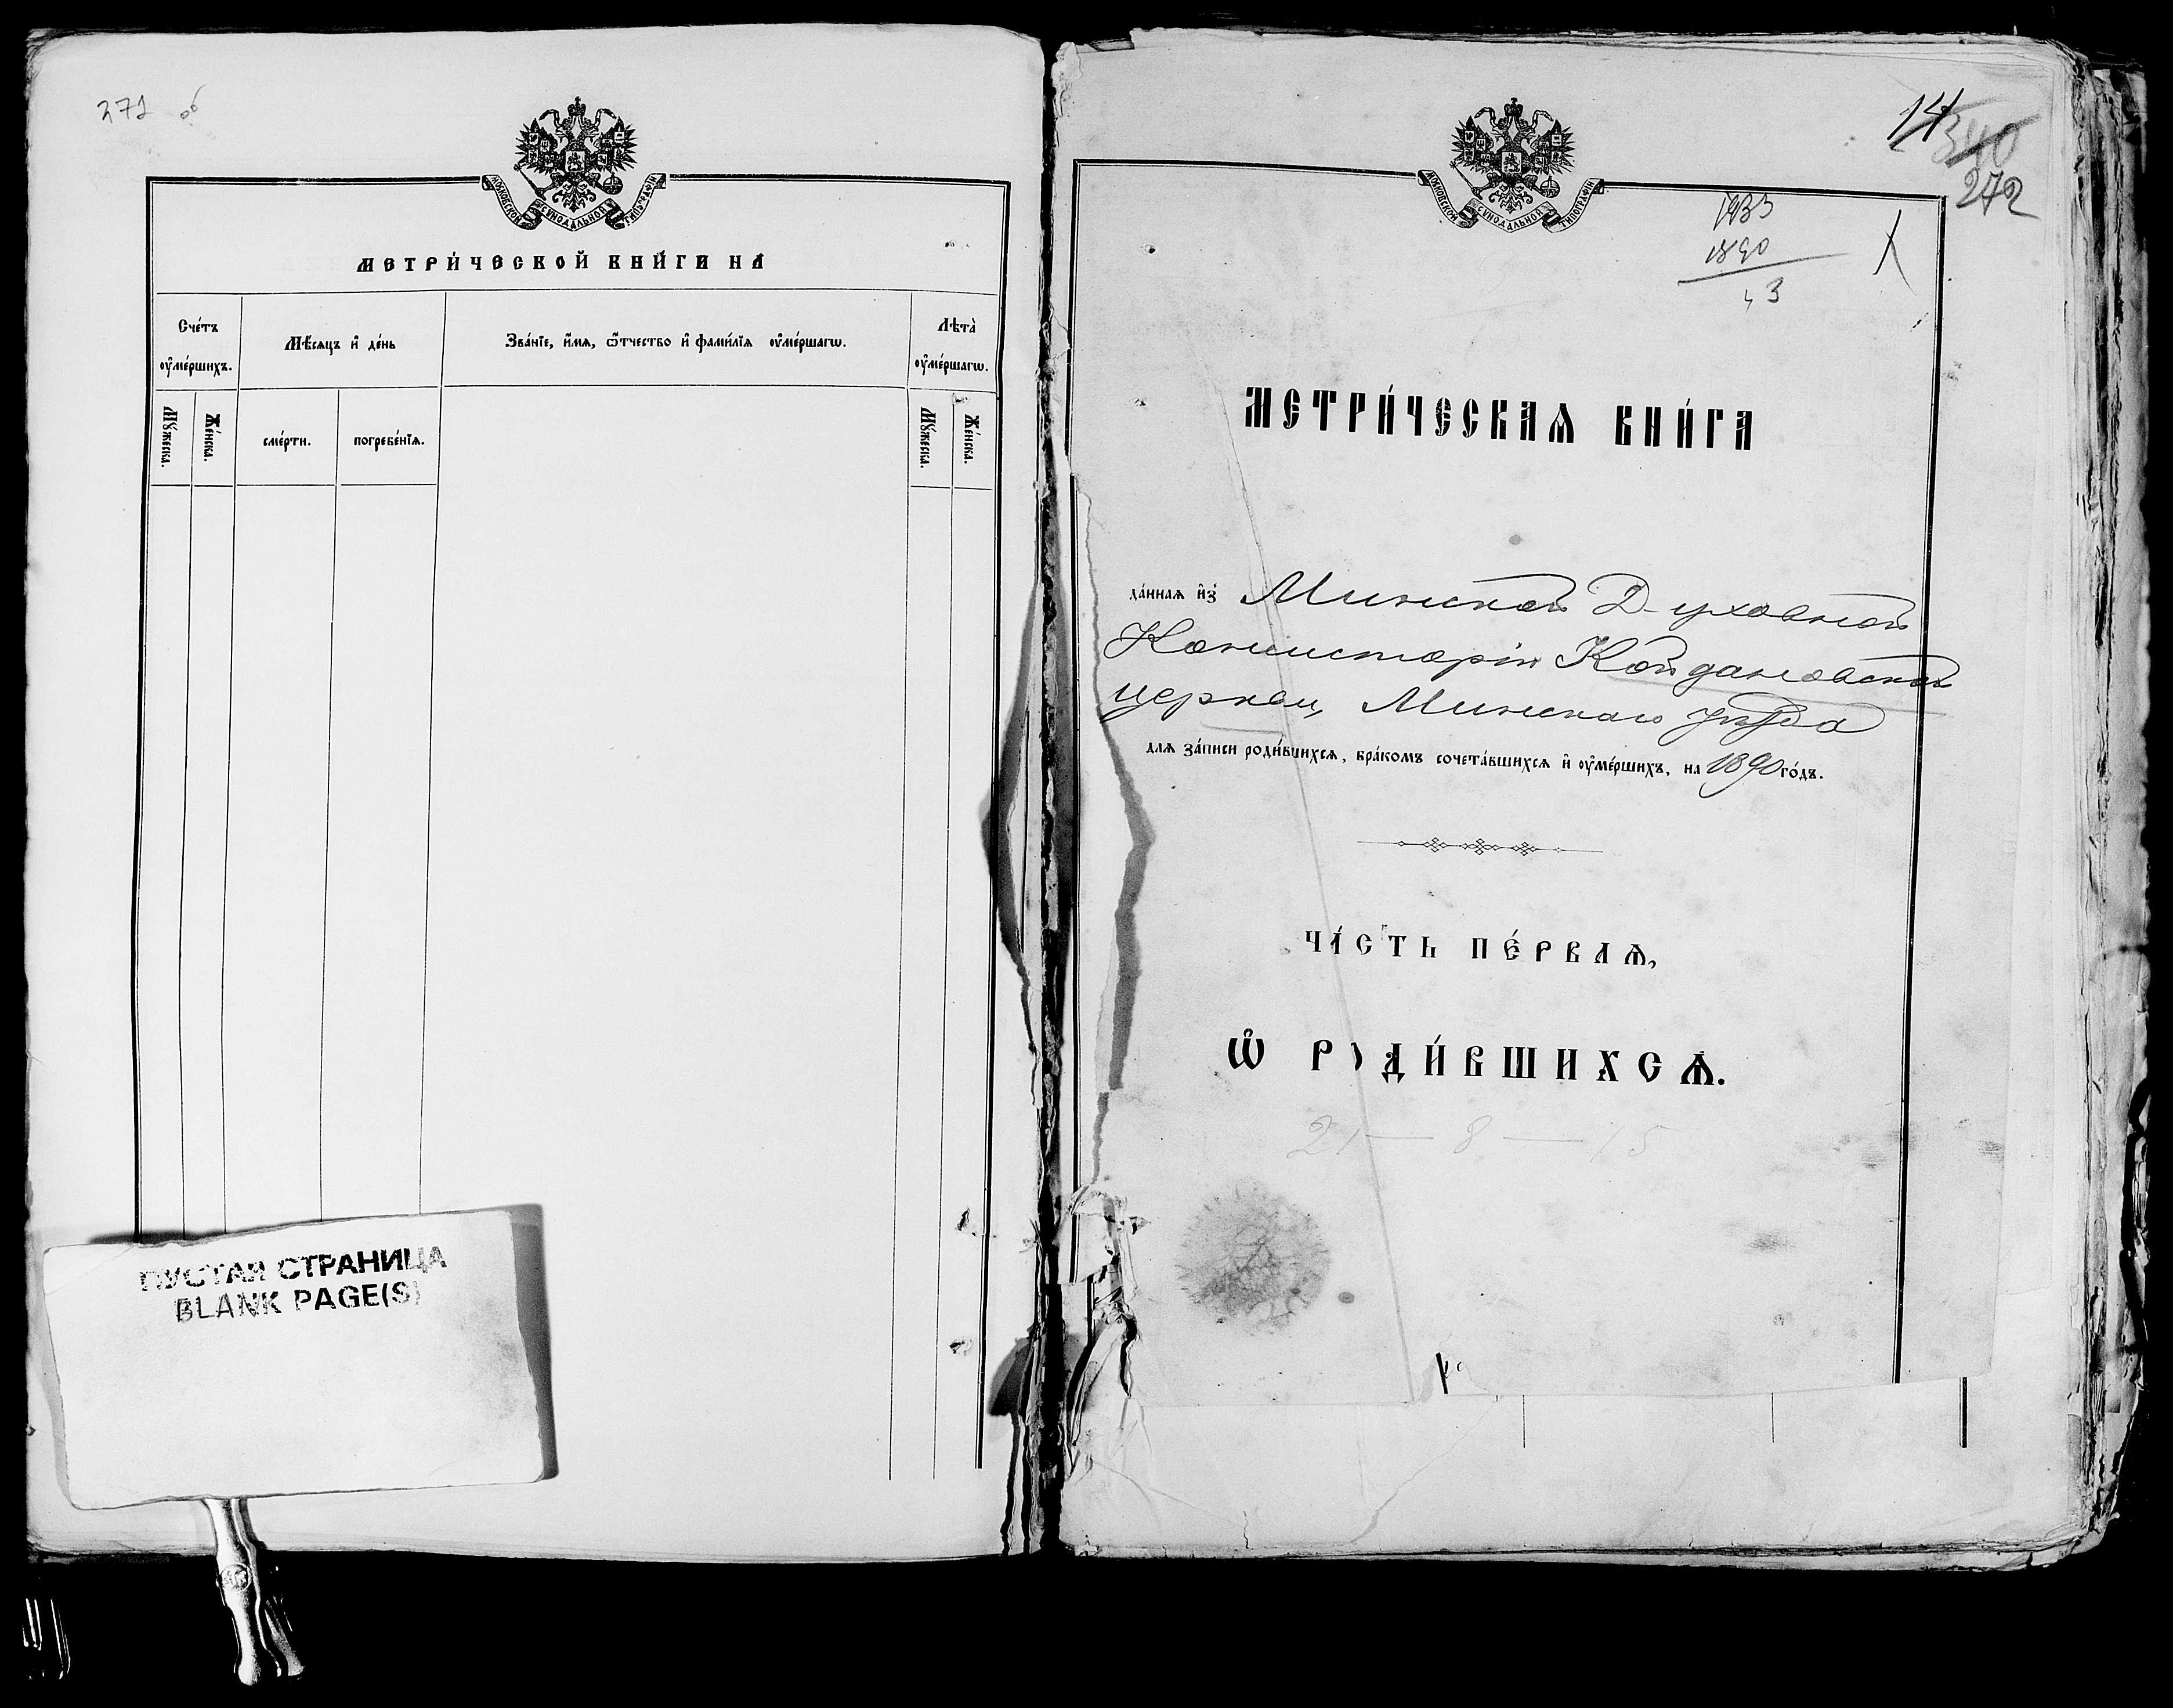 271 об
МОСКОВСКОЙ СѴНОДАЛЬНОЙ ТИПОГРАФІИ
МЕТРИ́ЧЕСКОЙ КНИ́ГИ НА
Сче́тъ ᲂу҆ме́ршихъ.
Мѣ́сяцъ и҆ де́нь
Зва́нїе, и҆́мѧ, ѻ҆́тчество и҆ фами́лїѧ ᲂу҆ме́ршагѡ.
Лѣта̀ ᲂу҆ме́ршагѡ.
Мꙋ́жеска.
Же́нска.
сме́рти.
погребе́нїѧ.
Мꙋ́жеска.
Же́нска.
ПУСТАЯ СТРАНИЦА
BLANK PAGE(S)
14
340
272
МОСКОВСКОЙ СѴНОДАЛЬНОЙ ТИПОГРАФІИ
1933
1890
43
МЕТРИ́ЧЕСКАѦ КНИ́ГА
да́ннаѧ и҆з̾ Минской Духовной
Консисторіи Койдановской
церкви, Минскаго уѣзда
длѧ за́писи роди́вшихсѧ, бра́комъ сочета́вшихсѧ и҆ ᲂу҆ме́ршихъ, на 1890 го́дъ.
ЧА́СТЬ ПЕ́РВАѦ,
Ѽ РОДИ́ВШИХСѦ.
21 — 8 — 15